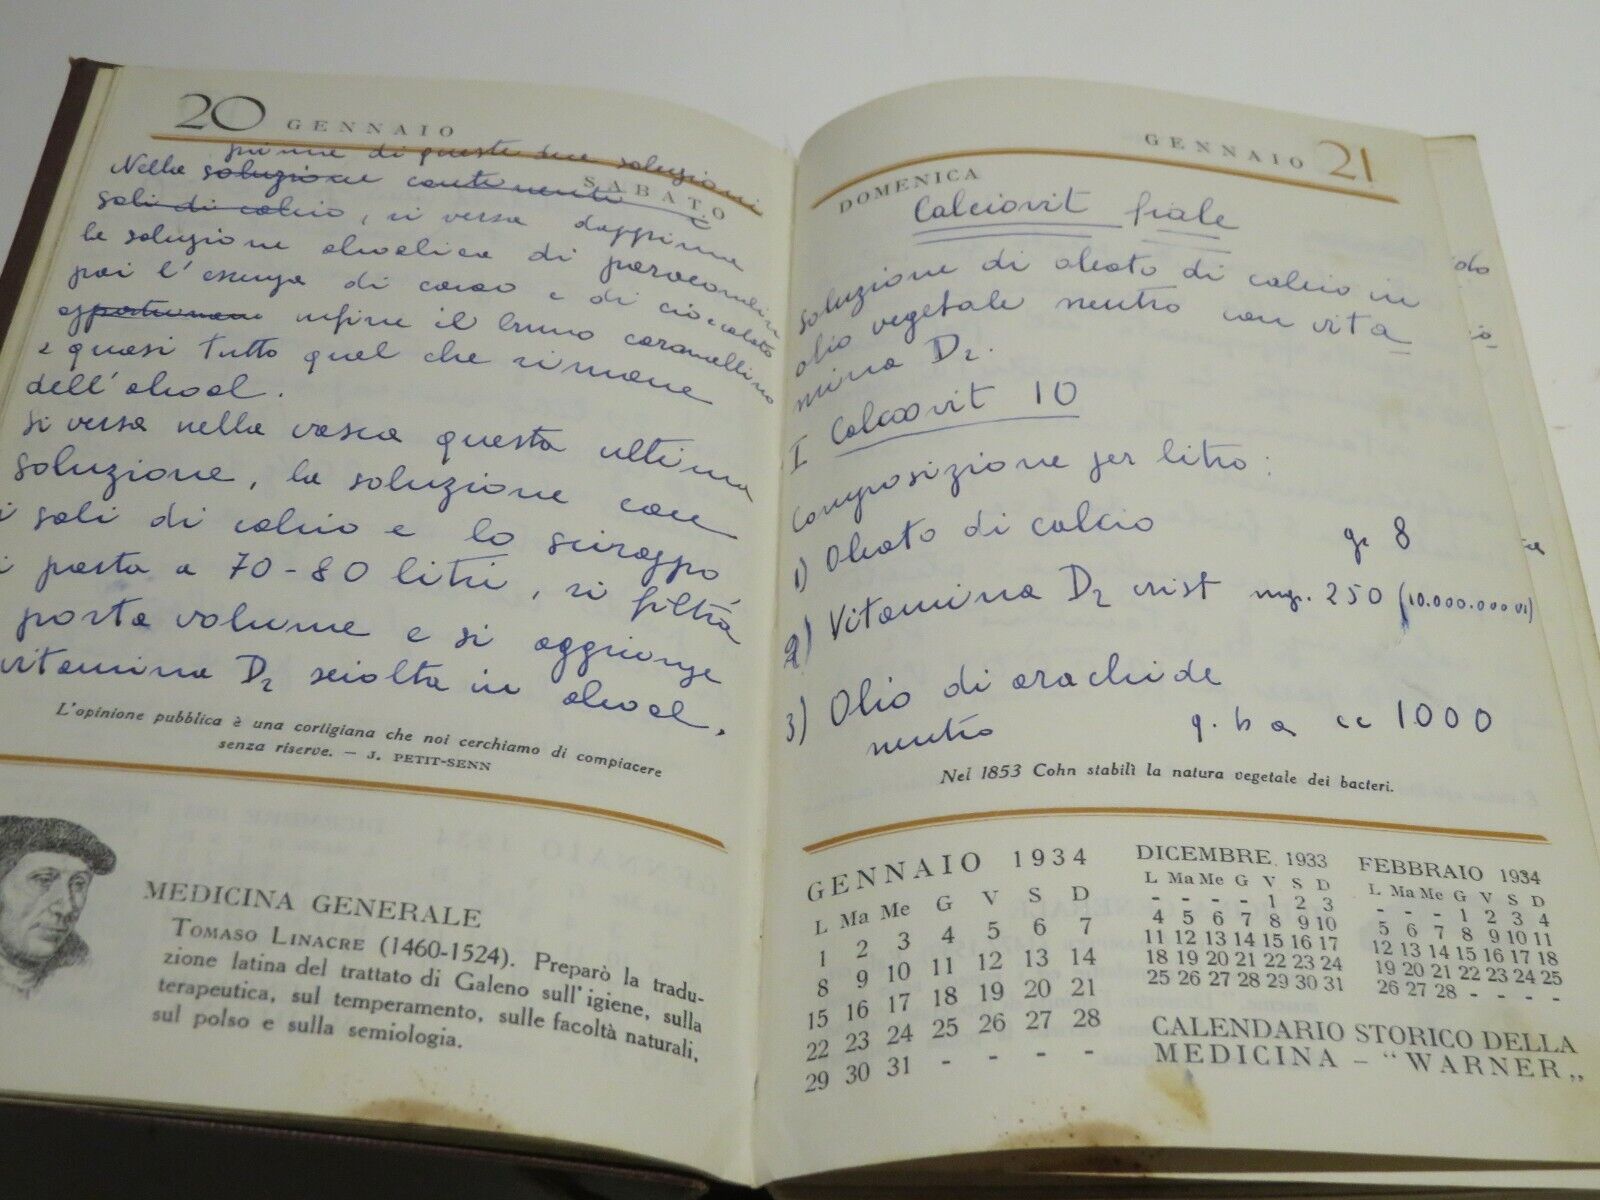 20 GENNAIO
SABATO
prime di queste due soluzioni
Nella soluzione contenenti i
sali di calcio, si versa dapprima
la soluzione alcolica di
poi l'essenza di cacao e di cioccolato
infine il bruno caramellino
e quasi tutto quel che rimane
dell'alcool.
si versa nella vasca questa ultima
soluzione, la soluzione con
i sali di calcio e lo sciroppo
si porta a 70-80 litri, si filtra
porta volume e si aggiunge
vitamina D2 sciolta in alcool.
L'opinione pubblica è una cortigiana che noi cerchiamo di compiacere
senza riserve. — J. PETIT-SENN
MEDICINA GENERALE
TOMASO LINACRE (1460-1524). Preparò la tradu-
zione latina del trattato di Galeno sull'igiene, sulla
terapeutica, sul temperamento, sulle facoltà naturali,
sul polso e sulla semiologia.
GENNAIO 21
DOMENICA
Calciovit fiale
soluzione di oleato di calcio in
olio vegetale neutro con vita
mina D2.
I Calciovit 10
Composizione per litro:
1) Oleato di calcio gr 8
2) Vitamina D2 crist mg. 250 (10.000.000 UI)
3) Olio di arachide
neutro q. b a cc 1000
Nel 1853 Cohn stabilì la natura vegetale dei bacteri.
GENNAIO 1934
L Ma Me G V S D
1 2 3 4 5 6 7
8 9 10 11 12 13 14
15 16 17 18 19 20 21
22 23 24 25 26 27 28
29 30 31 - - - -
DICEMBRE 1933
L Ma Me G V S D
- - - - 1 2 3
4 5 6 7 8 9 10
11 12 13 14 15 16 17
18 19 20 21 22 23 24
25 26 27 28 29 30 31
FEBBRAIO 1934
L Ma Me G V S D
- - - 1 2 3 4
5 6 7 8 9 10 11
12 13 14 15 16 17 18
19 20 21 22 23 24 25
26 27 28 - - - -
CALENDARIO STORICO DELLA
MEDICINA - "WARNER„